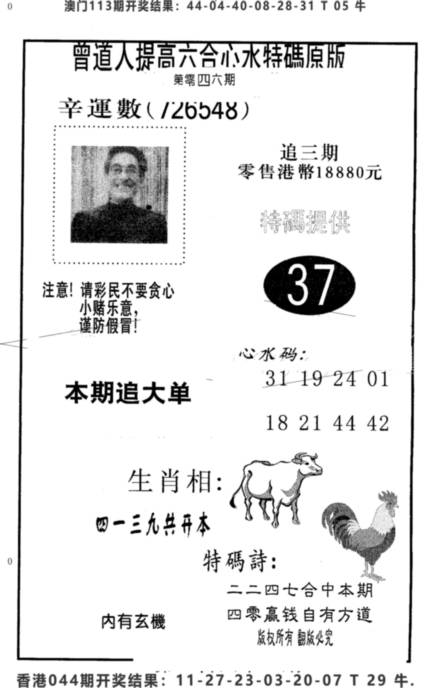 澳门113期开奖结果：44-04-40-08-28-31 T 05 牛
曾道人提高六合心水特碼原版
第零四六期
辛運數(726548)
追三期
零售港幣18880元
特碼提供
37
注意！请彩民不要贪心
小赌乐意，
谨防假冒！
心水码：
31 19 24 01
本期追大单
18 21 44 42
生肖相：
四一三九共开本
特碼詩：
二二四七合中本期
四零赢钱自有方道
内有玄機
版权所有 翻版必究
香港044期开奖结果：11-27-23-03-20-07 T 29 牛.